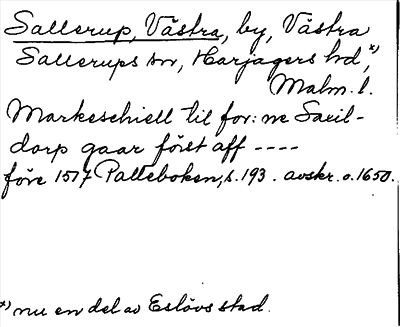 Sallerup, Västra, by, Västra
Sallerups sn, Harjagers hd,*)
Malm. l.
Markeschiell til for: ne Saxil-
dorp gaar först aff ----
före 1517 Palteboken, s. 193. avskr. o. 1650.
*) nu en del av Eslövs stad.